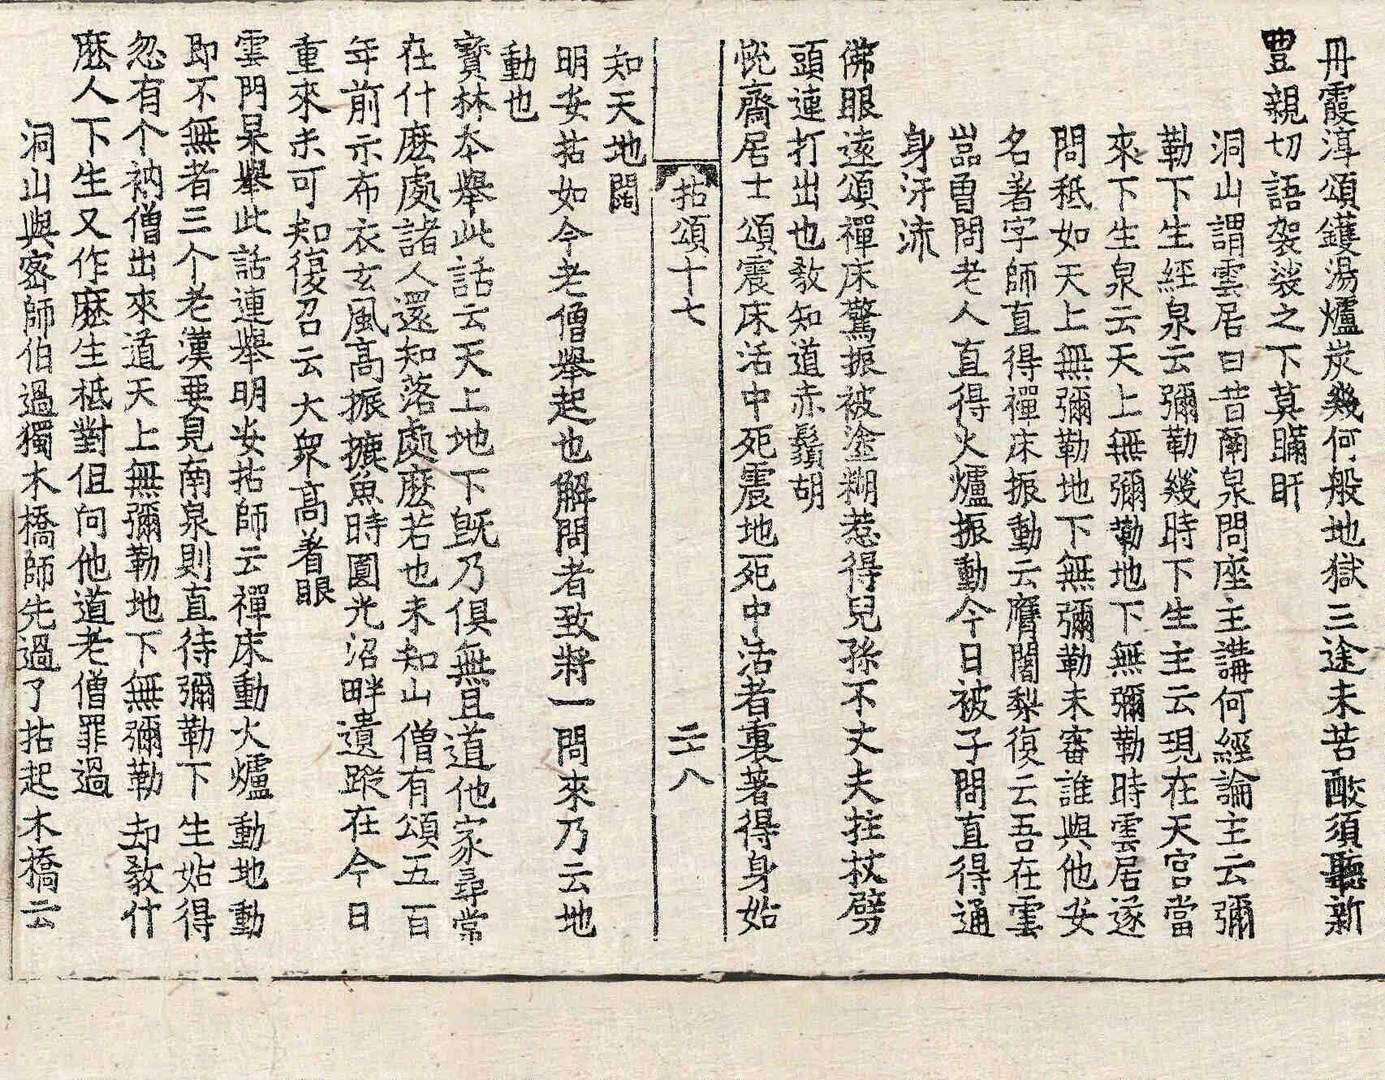 丹霞淳頌鑊湯爐炭幾何般地獄三途未苦酸須聽新
豊親切語袈裟之下莫瞞盰
洞山謂雲居曰昔南泉問座主講何經論主云彌
勒下生經泉云彌勒幾時下生主云現在天宮當
來下生泉云天上無彌勒地下無彌勒時雲居遂
問秪如天上無彌勒地下無彌勒未審誰與他安
名著字師直得禪床振動云膺闍梨復云吾在雲
嵒曾問老人直得火爐振動今日被子問直得通
身汗流
佛眼遠頌禪床驚振被塗糊惹得兒孫不丈夫拄杖劈
頭連打出也敎知道赤鬚胡
恱齋居士頌震床活中死震地死中活者裏著得身始
拈頌十七
二十八
知天地闊
明安拈如今老僧舉起也解問者致將一問來乃云地
動也
寳林本舉此話云天上地下旣乃俱無且道他家尋常
在什麽處諸人還知落處麽若也未知山僧有頌五百
年前示布衣玄風高振摝魚時圎光沼畔遺蹤在今日
重來未可知復召云大衆高着眼
雲門杲舉此話連舉明安拈師云禪床動火爐動地動
即不無者三个老漢要見南泉則直待彌勒下生始得
忽有个衲僧出來道天上無彌勒地下無彌勒却敎什
麽人下生又作麽生秪對但向他道老僧罪過
洞山與密師伯過獨木橋師先過了拈起木橋云